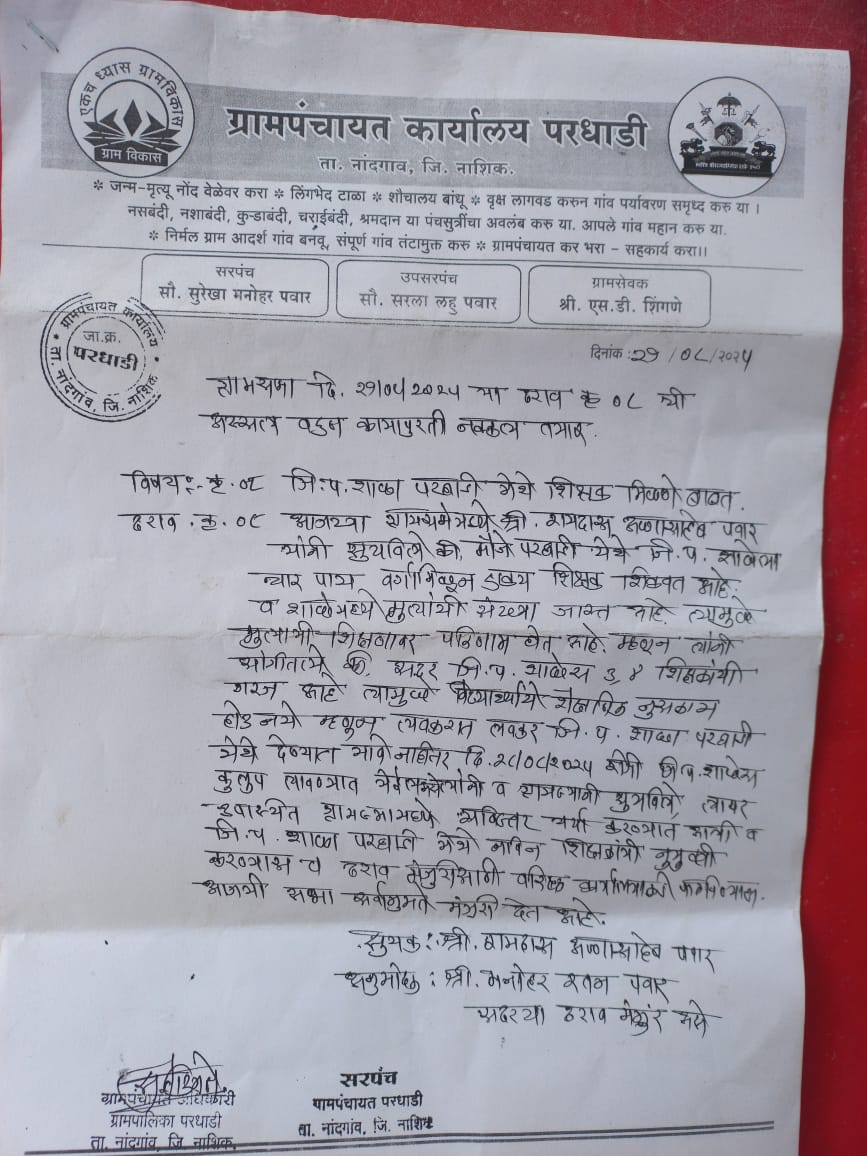 एकच ध्यास ग्रामविकास
ग्राम विकास
ग्रामपंचायत कार्यालय परधाडी
ता. नांदगाव, जि. नाशिक.
* जन्म-मृत्यू नोंद वेळेवर करा * लिंगभेद टाळा * शौचालय बांधू * वृक्ष लागवड करुन गांव पर्यावरण समृध्द करु या ।
नसबंदी, नशाबंदी, कुऱ्हाडबंदी, चराईबंदी, श्रमदान या पंचसुत्रिंचा अवलंब करु या. आपले गांव महान करु या.
* निर्मल ग्राम आदर्श गांव बनवू, संपूर्ण गांव तंटामुक्त करु * ग्रामपंचायत कर भरा - सहकार्य करा।।
सरपंच
सौ. सुरेखा मनोहर पवार
उपसरपंच
सौ. सरला लहु पवार
ग्रामसेवक
श्री. एस.डी. शिंगणे
ग्रामपंचायत कार्यालय
जा.क्र.
परधाडी
ता. नांदगाव, जि. नाशिक
दिनांक: 29/08/2024
ग्रामसभा दि. च्या ठराव क्र ०८ ची
अस्सल वरुन कामापुरती नक्कल तयार.
विषय:- क्र. ०८ जि.प. शाळा परधाडी येथे शिक्षक मिळणे बाबत.
ठराव. क्र. ०८ आजच्या ग्रामसभेमध्ये श्री. रामदास आण्णासाहेब पवार
यांनी सुचविले की, मौजे परधाडी येथे जि. प. शाळेला
चार पाच वर्गा मिळून शिक्षक शिकवत आहे.
व शाळेमध्ये मुलांची संख्या जास्त आहे. त्यामुळे
मुलांची शिक्षणावर परिणाम होत आहे. म्हणून त्यांनी
सांगितले की, सदर जि. प. शाळेस ३, ४ शिक्षकांची
गरज आहे त्यामुळे विद्यार्थ्यांचे शैक्षणिक नुकसान
होऊ नये म्हणून लवकरात लवकर जि. प. शाळा परधाडी
येथे देण्यात यावे नाहीतर दि. २८/०८/२०२४ रोजी जि.प. शाळेस
कुलुप लावण्यात व ग्रामस्थांनी सुचविले त्यावर
उपस्थित ग्रामसभामध्ये सविस्तर चर्चा करण्यात आली व
जि. प. शाळा परधाडी येथे नविन शिक्षकांची नियुक्ती
करण्यास व ठराव मंजुरीसाठी वरिष्ठ कार्यालयाकडे
आजची सभा सर्वानुमते मंजुरी देत आहे.
सुचक: श्री. रामदास आण्णासाहेब पवार
अनुमोदक: श्री. मनोहर रतन पवार
सदरचा ठराव मंजुर असे
ग्रामपंचायत अधिकारी
ग्रामपालिका परधाडी
ता. नांदगांव, जि. नाशिक.
सरपंच
ग्रामपंचायत परधाडी
ता. नांदगांव, जि. नाशिक